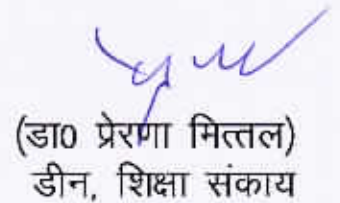 (डा0 प्रेरणा मित्तल)
डीन, शिक्षा संकाय